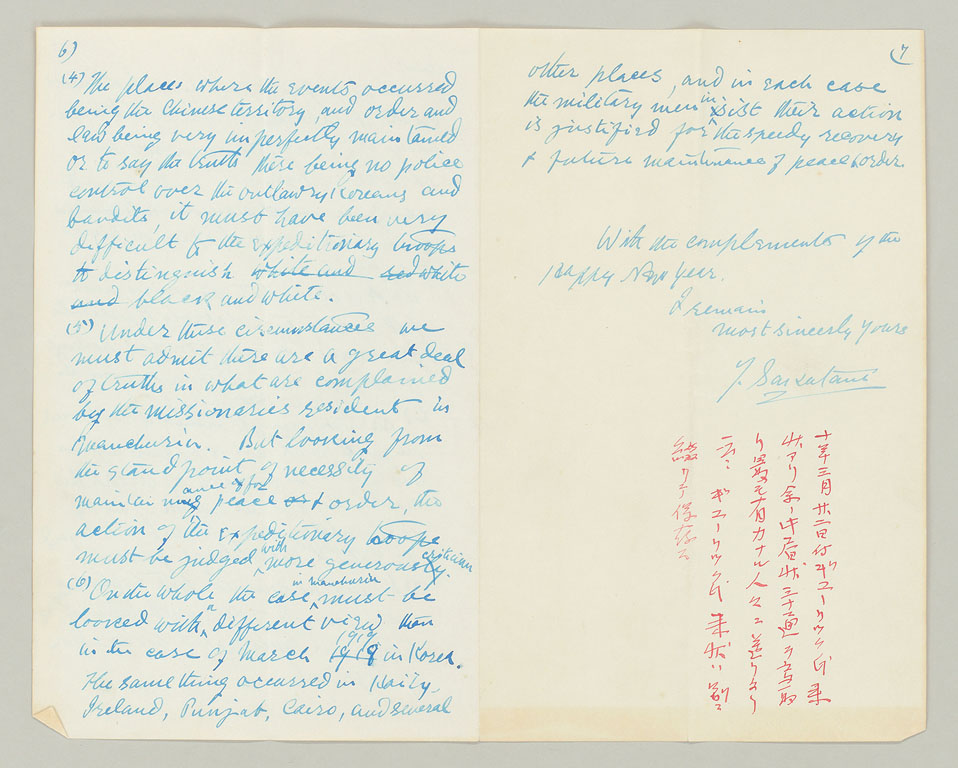 6)
(4) The places where the events occurred
being the Chinese territory, and order and
law being very imperfectly maintained
or to say the truth there being no police
control over the outlawry Koreans and
bandits, it must have been very
difficult for the expeditionary troops
to distinguish white and red white
and black and white.
(5) Under these circumstances we
must admit there are a great deal
of truths in what are complained
by the missionaries resident in
Manchuria. But looking from
the stand point of necessity of
maintenance of peace & order, the
action of the expeditionary troops
must be judged with more generous criticism.
(6) On the whole the case in Manchuria must be
looked with a different view than
in the case of March 1919 in Korea.
The same thing occurred in Haity,
Ireland, Punjab, Cairo, and several
7
other places, and in each case
the military men insist their action
is justified for the speedy recovery
& future maintenance of peace & order.
With the complements of the
Happy New Year.
I remain
most sincerely yours
十年三月廿二日付ギューリック氏来
状アリ
有力ナル人々ニ送リタリ
ギューリック氏来状ハ別ニ
綴リテ保存ス